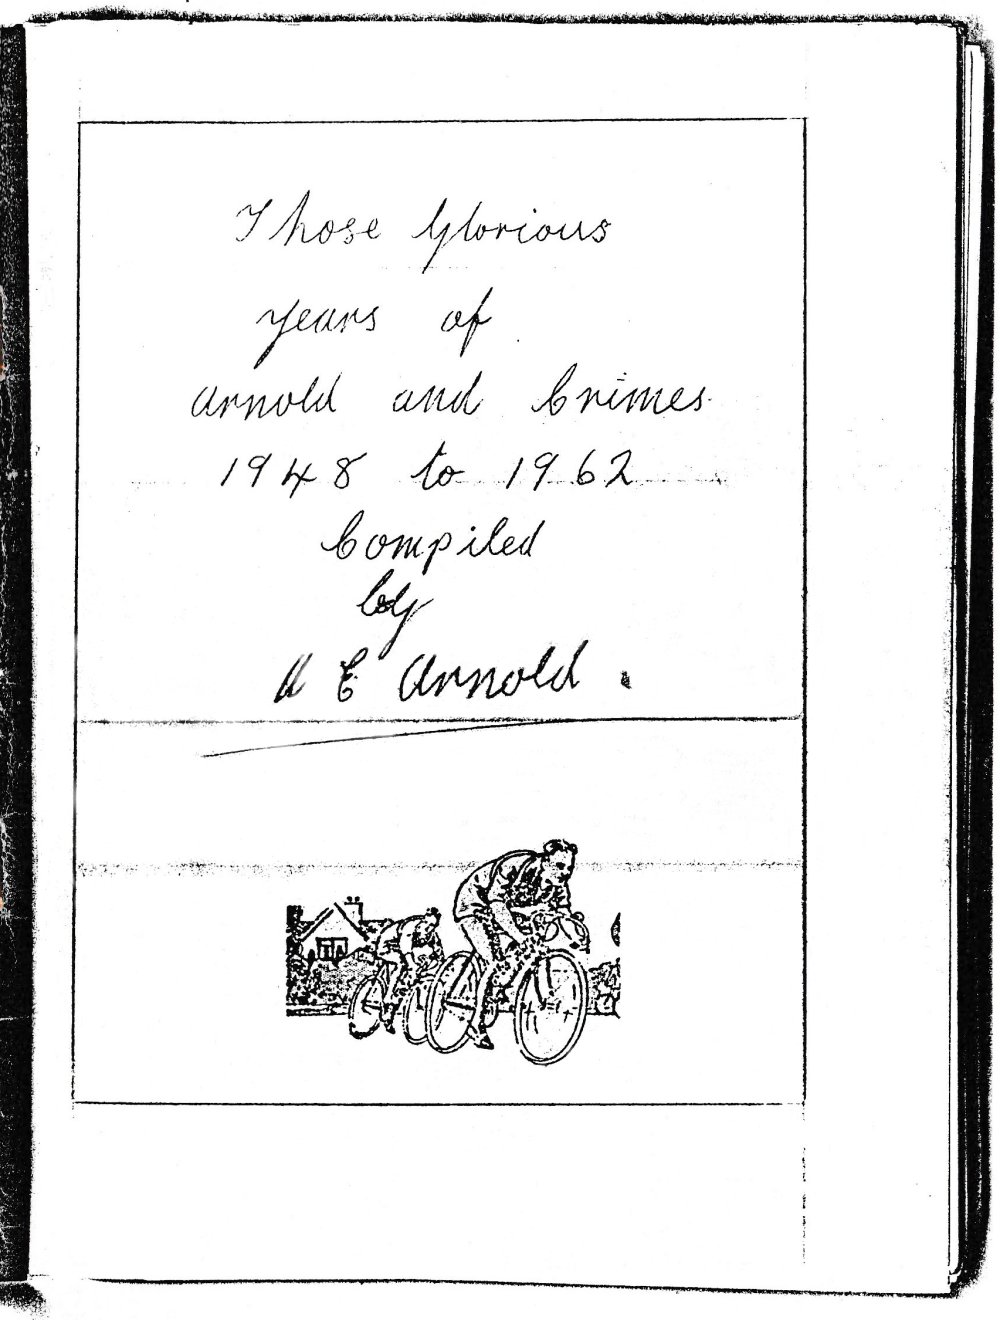 Those Glorious
years of
Arnold and Crimes
1948 to 1962
Compiled
by
A E Arnold.